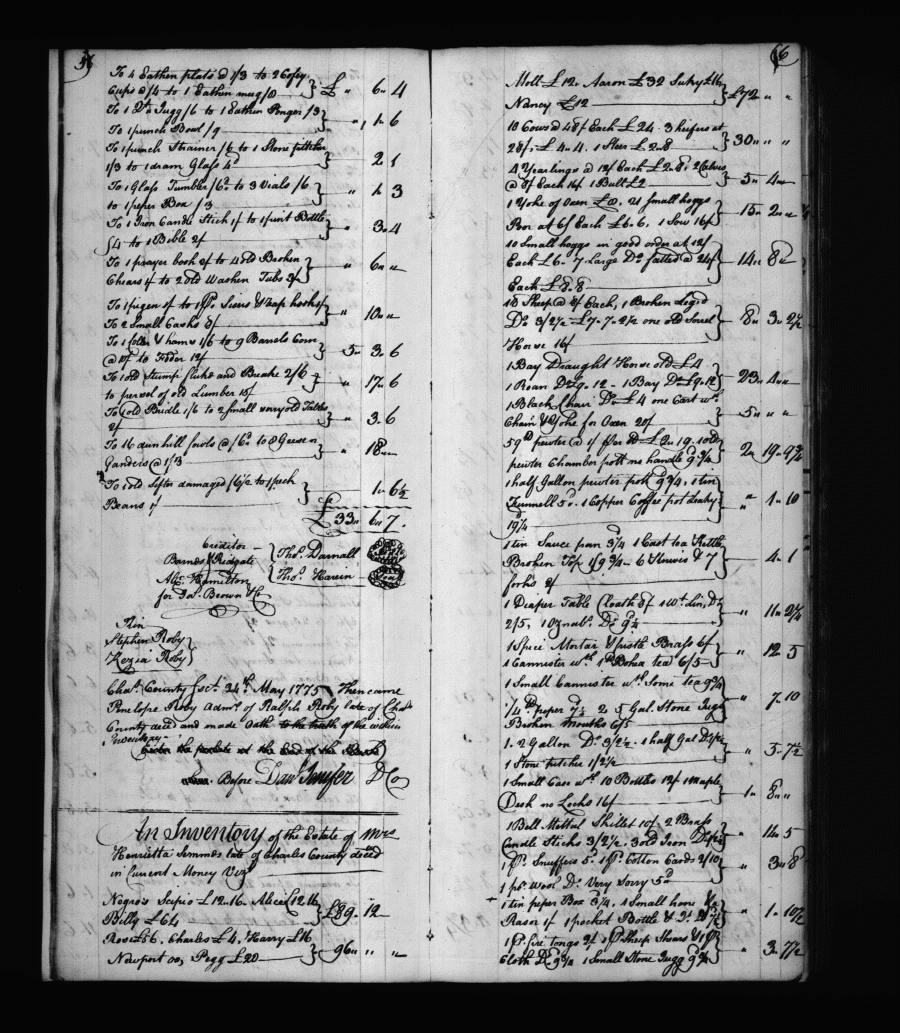 56
To 4 Eathen plats @ 1/3 to 2 Cofey
Cups @ /4 to 1 Eathin mug /8 } £ " 6 " 4
To 1 Do Jugg /6 to 1 Eathin Porger /3
To 1 punch Bowl /9 } " 1 " 6
To 1 punch Strainer /6 to 1 Stone pitcher
1/3 to 1 dram Glass 4d } 2 " 1
To 1 Glass Tumbler /6 to 3 Vials /6
to 1 peper Box /3 } " 1 " 3
To 1 Iron Candle Stick 1/ to 1 pint Bottle
/4 to 1 Bible 2/ } " 3 " 4
To 1 prayer book 2/ to 4 old Broken
Chears 1/ to 2 old Washen Tubs 3/ } " 6 " "
To 2 Small Casks 8/ } " 10 " "
To 1 coller & hams 1/6 to 9 Barrels Corn
@ 10/ to Fodder 12/ } 5 " 3 " 6
To 1 old Stump fluke and Breake 2/6
to parsel of old Lumber 15/ } " 17 " 6
To 1 old Bridle 1/6 to 2 small very old Tables
2/ } " 3 " 6
To 16 dunhill fowls @ /6 to 8 Geese &
Ganders @ 1/3 } " 18 " "
To 1 old Sifter damaged /6 1/2 to 1 peck
Beans 1/ } 1 " 6 1/2
£ 33 " 6 " 7
Creditor
Barnes & Ridgate
Alex. Hamilton
for Jas. Brown & Co
} Thos. Darnall
Thos. Harrin
Kin
Stephen Roby
Kezia Roby
Chas. County Sct. 24th May 1775 Then came
Penelope Roby Admx. of Ralph Roby late of Chas
County decd and made Oath to the truth of the within
Inventory
Before Danl Jenifer D Co
An Inventory of the Estate of Mrs
Henrietta Semmes late of Charles County decd
in Current Money Vizt
Negro's Scipio £12.16. Alice £12.16
Billy £64 } £89 " 12
Rose £56. Charles £4, Harry £16
Newport 00, Pegg £20 } 96 " " "
66
Moll £12. Aaron £32 Suky £16
Nancy £12 } £72 " "
10 Cows @ 48/ Each £24. 3 heifers at
28/. £4.4. 1 Steer £2.8 } 30 " " "
4 Yearlings @ 12/ Each £2.8, 2 Calves
@ 8/ Each 16/ 1 Bull £2 } 5 " 4 "
1 Yoke of Oxen £8. 21 Small hoggs
Poor at 6/ Each £6.6, 1 Sow 16/ } 15 " 2 " "
10 Small hoggs in good order at 12/
Each £6. 7 Large Do fatted @ 24/
Each £8.8 } 14 " 8 "
18 Sheep @ 8/ Each, 1 Broken Leged
Do 3/2 1/2 £7.7.2 1/2 one old Sorrel
Horse 16/ } 8 " 3 " 2 1/2
1 Bay Draught Horse old £4
1 Roan Do £9.12 - 1 Bay Do £9.12 } 23 " 4 " "
1 Black Chair Do £4 one Cart wth
Chain & Yoke for Oxen 20/ } 5 " " "
59 lb pewter @ 1/ per lb £2.19. 1 old
pewter Chamber pott no handle 9 3/4 } 2 " 19 " 9 3/4
1 half Gallon pewter pott 9 3/4, 1 tin
Funnell 5d. 1 Copper Coffee pot Leaky
19 1/4 } " 1 " 10
1 tin Sauce pan 3 3/4 1 Cast tea Kettle
Broken Top 1/9 3/4 6 Knives & 7
forks 2/ } 4 " 1
1 Diaper Table Cloath 8/ 1 Wt Lin, Do
2/5, 1 Oznabs. Do 9 1/4 } " 11 " 2 1/4
1 Spice Mortar & pistle Brass 6/
1 Cannister wth 1 lb Bohea tea 6/5 } " 12 " 5
1 Small Cannister wth Some tea 9 3/4
1/4 lb peper 7 1/4 2 5 Gal. Stone Jugs
Broken Mouths 6/5 } " 7 " 10
1. 2 Gallon Do 3/2 1/2. 1 half Gal Do
1 Stone pitcher 1/2 1/2 } " 5 " 7 1/2
1 Small Case wth 10 Bottles 12/ 1 Maple
Desk no Locks 16/ } 1 " 8 " "
1 Bell Mettal Skillet 10/. 2 Brass
Candle Sticks 3/2 1/2. 3 old Iron Do } " 14 " 5
1 Pr. Snuffers 5d. 1 Pr. Cotton Cards 2/10
1 pr. Wool Do Very Sorry 5d } " 3 " 8
1 tin peper Box 3 3/4. 1 Small hone &
Rasor 1/ 1 pocket Bottle } " 1 " 10 1/2
1 Pr fire tongs 2/ 1 Pr Sheep Shears & 1 Pr
Cloth Do 9 3/4 1 Small Stone Jugg 9 3/4 } " 3 " 7 1/2